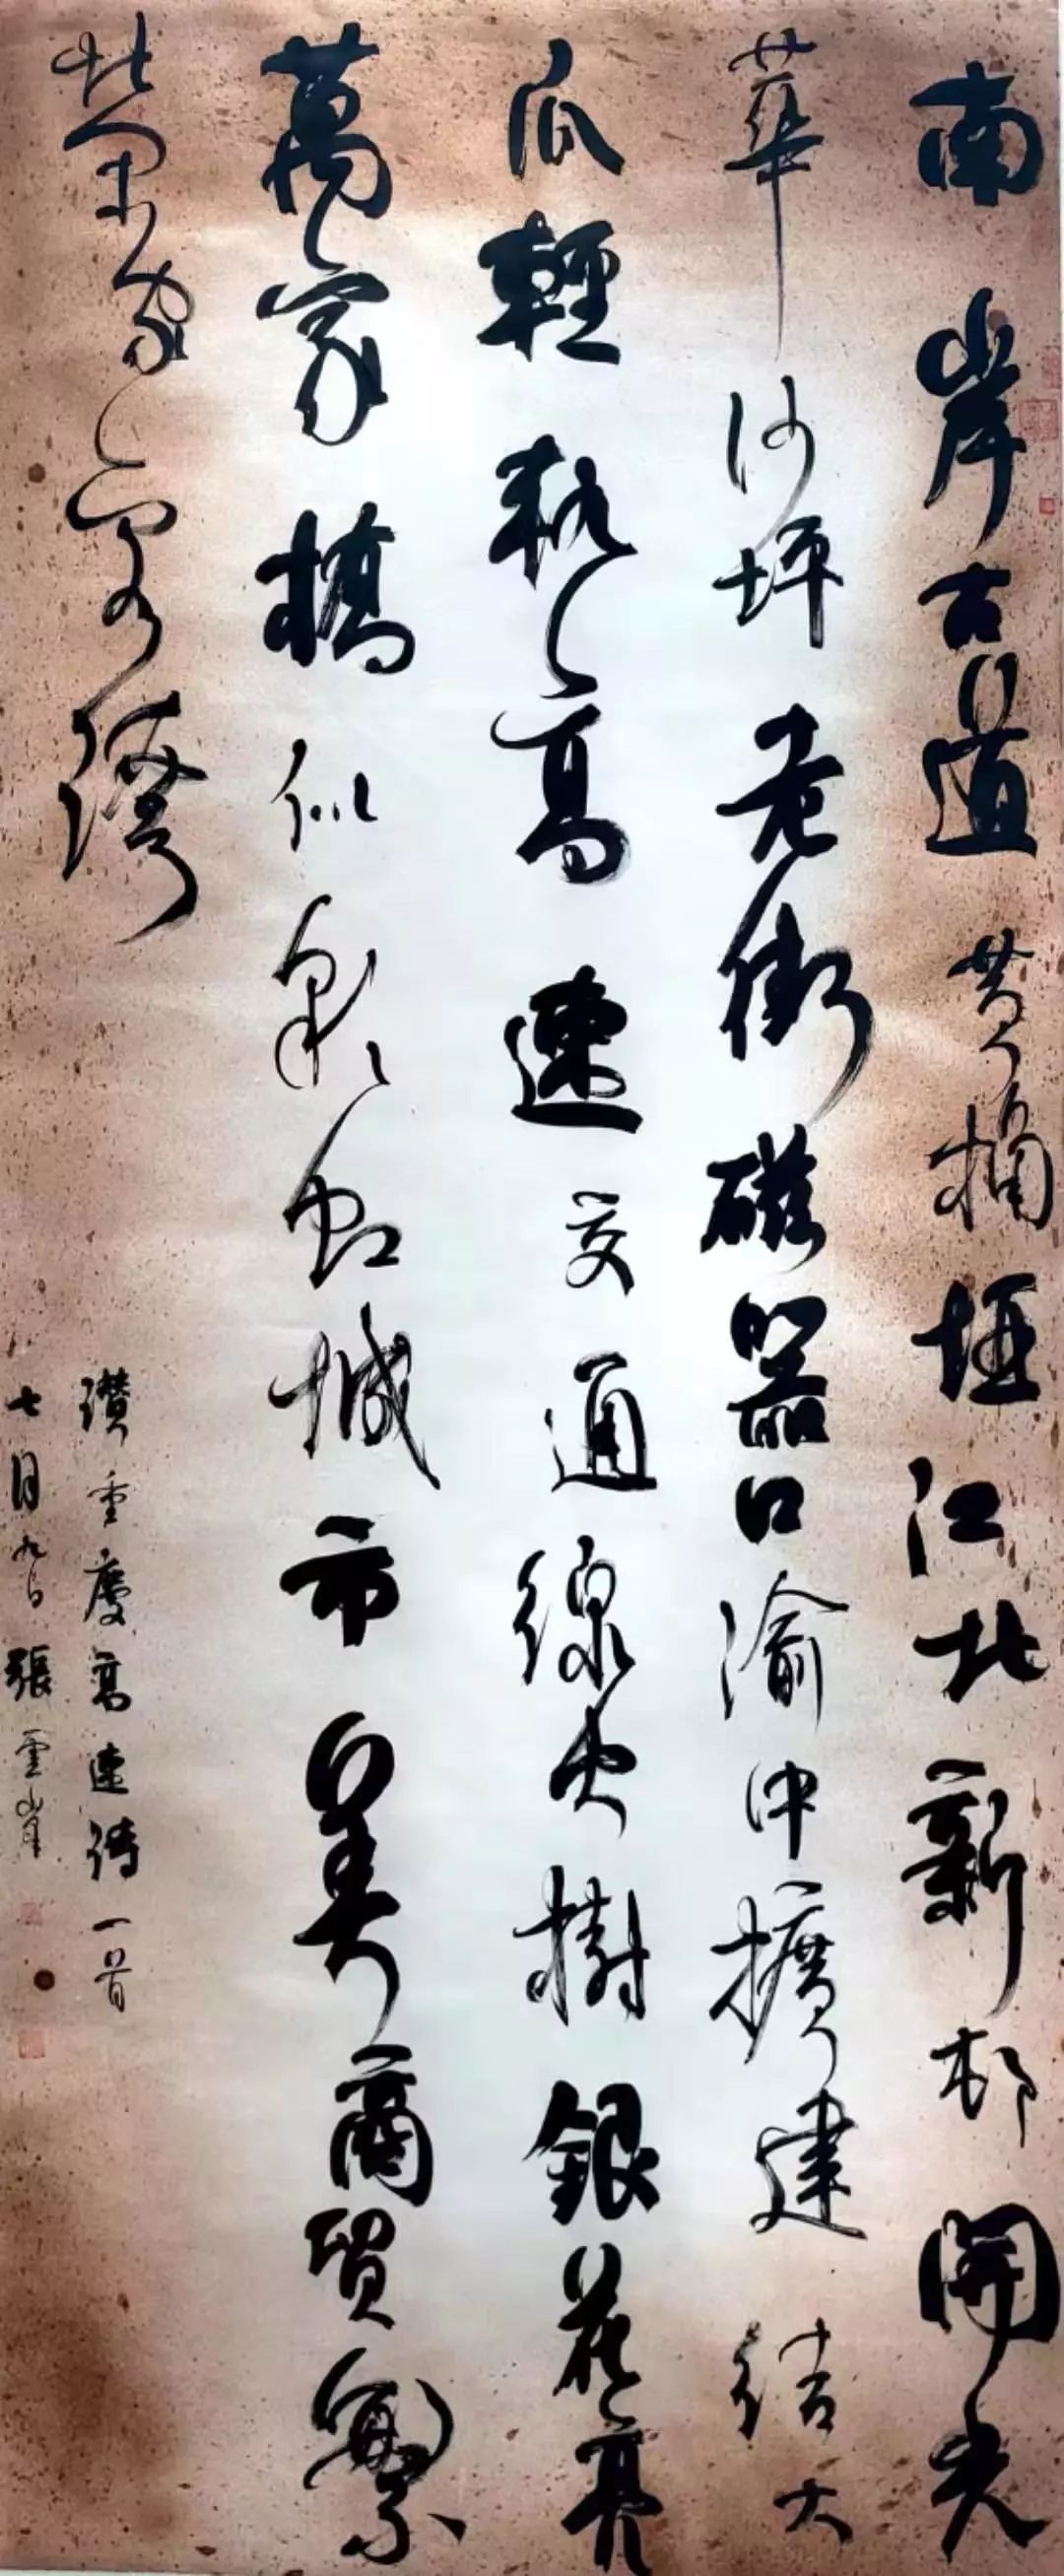 南岸古道黄桷垭江北新村開光
華沙坪老街磁器口渝中擴建結大
瓜輕軌高速交通線火樹銀花亮
萬家橋似彩虹城市美商貿繁
榮家家
讚重慶高速詩一首
七月九日張雲